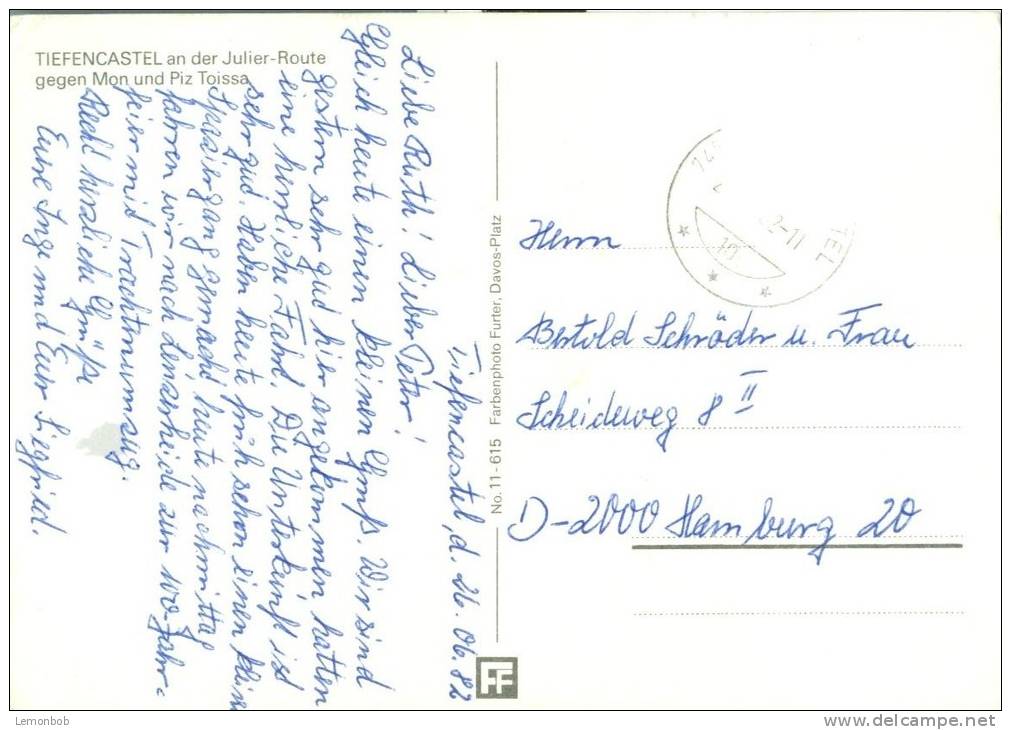 TIEFENCASTEL an der Julier-Route
gegen Mon und Piz Toissa
Tiefencastel, d. 26.06.82
Liebe Ruth! Lieber Peter!
Gleich heute einen kleinen Gruß. Wir sind
gestern sehr gut hier angekommen hatten
eine herrliche Fahrt. Die Unterkunft ist
sehr gut. Haben heute früh schon einen klein
Spaziergang gemacht heute nachmittag
fahren wir nach Lenzerheide zur 100-Jahr-
feier mit Trachtenumzug.
Recht herzliche Grüße
Eure Inge und Euer Siegfried.
No. 11-615 Farbenphoto Furter, Davos-Platz
FF
2-11
10
TEL
Herrn
Bertold Schröder u. Frau
Scheideweg 8 II
D-2000 Hamburg 20
Lemonbob
www.delcampe.net